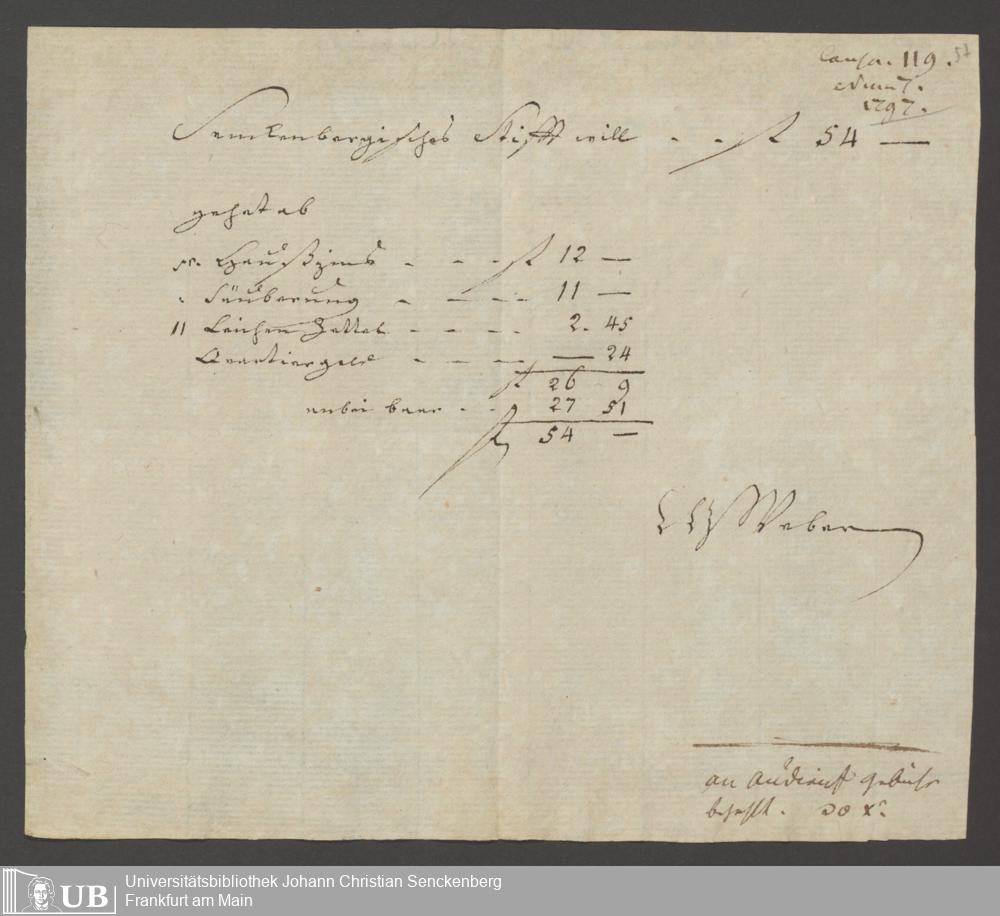 Causa. 119. 57
Num 7.
1797.
Senckenbergisches Stifft will - - fl 54 —
gehet ab
pr. Haußzins - - - fl 12 —
" Säuberung - - - - 11 —
11 Leichen Zettel - - - - 2. 45
Quartiergeld - - - - — 24
fl 26 9
anbei baar - - 27 51
fl 54 —
Weber
an audienß gebühr
bezahlt. 30 xr.
UB Universitätsbibliothek Johann Christian Senckenberg
Frankfurt am Main